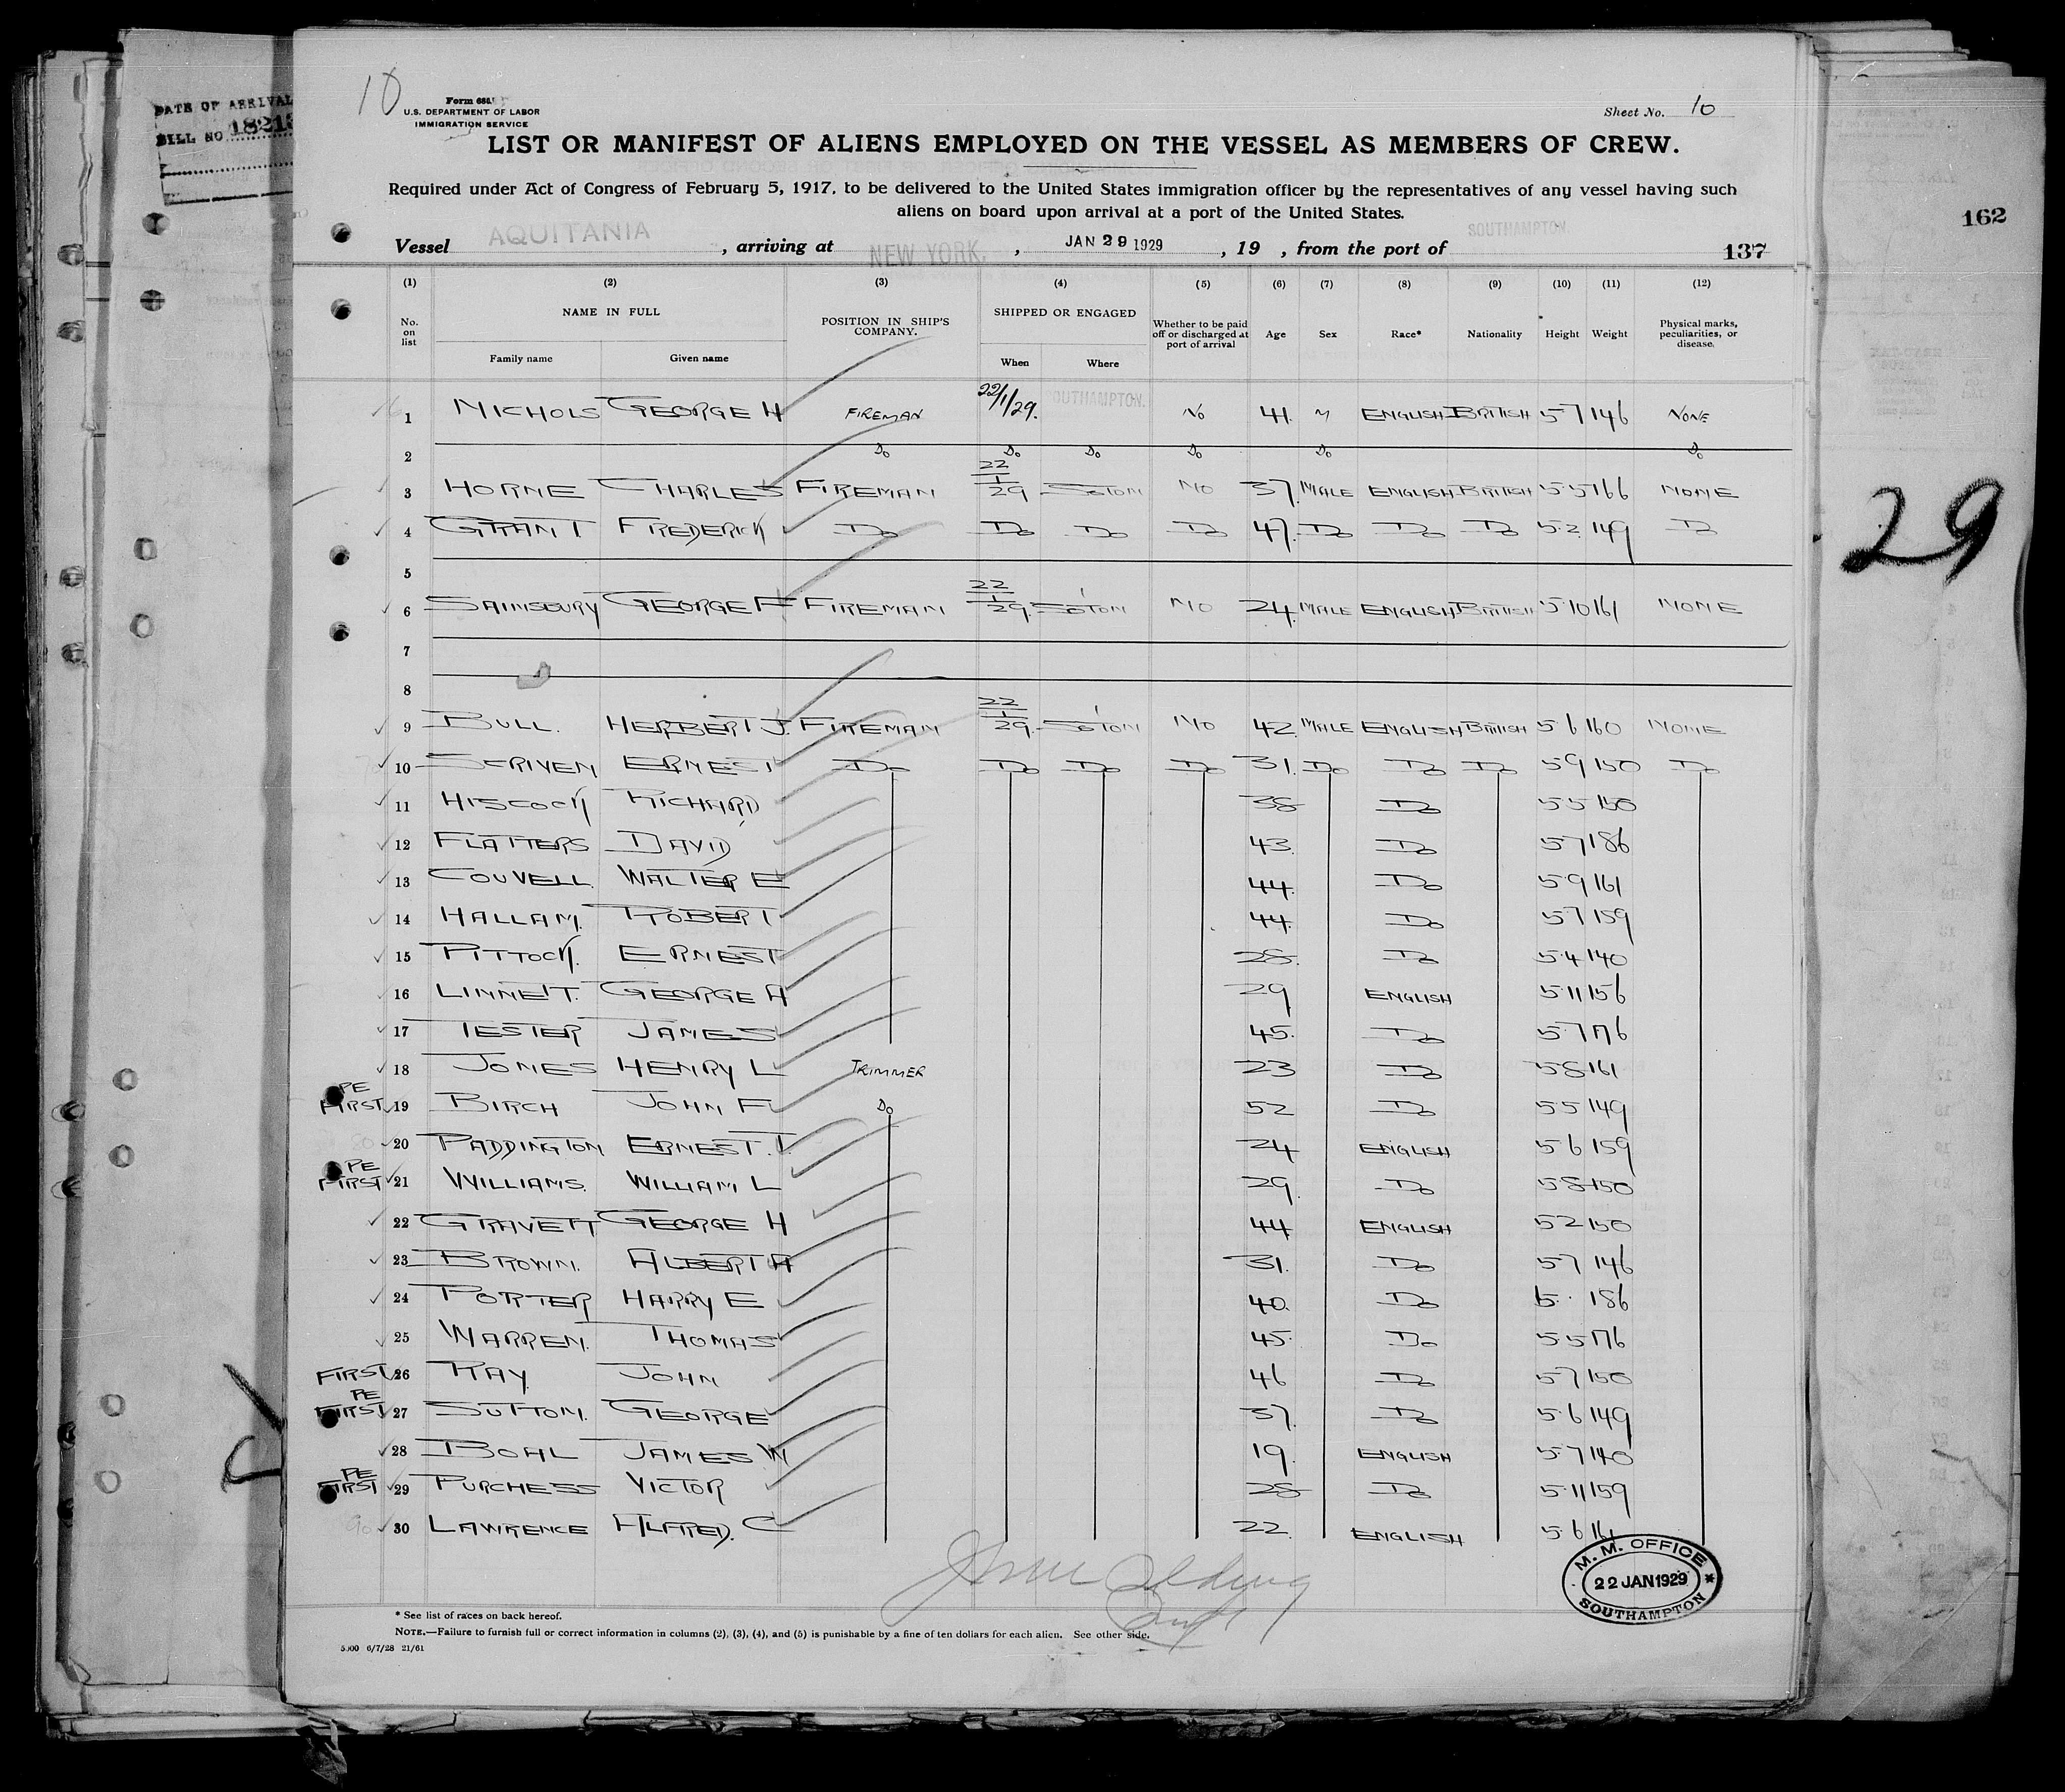 DATE OF ARRIVAL
BILL NO. 18213
10
Form 688
U.S. DEPARTMENT OF LABOR
IMMIGRATION SERVICE
Sheet No. 10
LIST OR MANIFEST OF ALIENS EMPLOYED ON THE VESSEL AS MEMBERS OF CREW.
Required under Act of Congress of February 5, 1917, to be delivered to the United States immigration officer by the representatives of any vessel having such
aliens on board upon arrival at a port of the United States.
162
Vessel AQUITANIA, arriving at NEW YORK, JAN 29 1929, 19 , from the port of SOUTHAMPTON. 137
(1) (2) (3) (4) (5) (6) (7) (8) (9) (10) (11) (12)
No. on list NAME IN FULL Family name Given name POSITION IN SHIP'S COMPANY. SHIPPED OR ENGAGED When Where Whether to be paid off or discharged at port of arrival Age Sex Race* Nationality Height Weight Physical marks, peculiarities, or disease.
1 NICHOLS GEORGE H FIREMAN 22/1/29. SOUTHAMPTON. NO 41. M ENGLISH BRITISH 5 7 146 NONE
2 Do Do Do Do Do Do
3 HORNE CHARLES FIREMAN 22/1/29 SOTON NO 37. MALE ENGLISH BRITISH 5 5 166 NONE
4 GRANT FREDERICK Do Do Do Do 47. Do Do Do 5.2 149 Do
5
6 SAINSBURY GEORGE F FIREMAN 22/1/29. SOTON NO 24. MALE ENGLISH BRITISH 5.10 161 NONE
7
8
9 BULL. HERBERT J. FIREMAN 22/1/29. SOTON NO 42. MALE ENGLISH BRITISH 5 6 160 NONE
10 SCRIVEN ERNEST Do Do Do Do 31. Do Do Do 5 9 150 Do
11 HISCOCK RICHARD 38 Do 5 5 150
12 FLATTERS DAVID 43. Do 5 7 186
13 COUVELL. WALTER E 44. Do 5 9 161
14 HALLAM. ROBERT 44. Do 5 7 159
15 PITTOCK. ERNEST 28. Do 5.4 140
16 LINNETT. GEORGE A 29 ENGLISH 5.11 156
17 TESTER JAMES 45. Do 5.7 176
18 JONES HENRY L TRIMMER 23 Do 5 8 161
PE
FIRST 19 BIRCH JOHN F Do 52 Do 5 5 149
20 PADDINGTON ERNEST. 24 ENGLISH 5 6 159
PE
FIRST 21 WILLIAMS. WILLIAM L 29. Do 5 8 150
22 GRAVETT GEORGE H 44 ENGLISH 5 2 150
23 BROWN. ALBERT A 31. Do 5 7 146
24 PORTER HARRY E 40. Do 5. 186
25 WARREN. THOMAS 45. Do 5 5 176
FIRST 26 RAY JOHN 46 Do 5 7 150
PE
FIRST 27 SUTTON. GEORGE 37. Do 5.6 149
28 BOAL JAMES W 19. ENGLISH 5.7 140
PE
FIRST 29 PURCHESS VICTOR 28 Do 5.11 159
30 LAWRENCE ALFRED. C 22. ENGLISH 5.6 161
29
M. M. OFFICE
22 JAN 1929
SOUTHAMPTON
* See list of races on back hereof.
NOTE.—Failure to furnish full or correct information in columns (2), (3), (4), and (5) is punishable by a fine of ten dollars for each alien. See other side.
5000 6/7/28 21/61